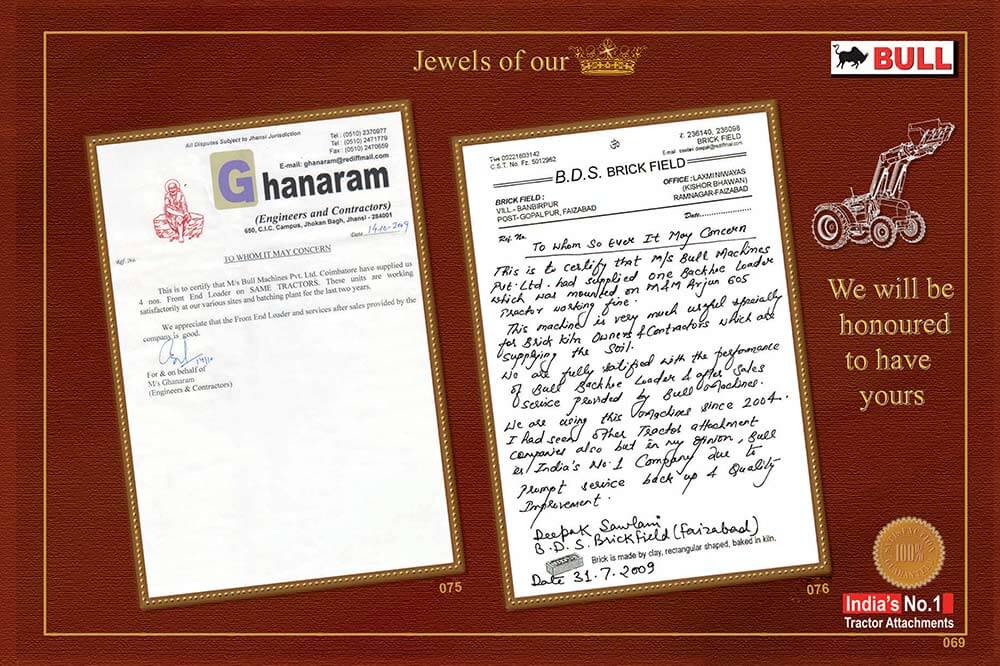 Jewels of our
BULL
All Disputes Subject to Jhansi Jurisdiction
Tel : (0510) 2370977
Tel : (0510) 2471779
Fax : (0510) 2470659
E-mail: ghanaram@rediffmail.com
Ghanaram
(Engineers and Contractors)
650, C.I.C. Campus, Jhokan Bagh, Jhansi - 284001
Ref. No.
Date 14.10.2009
TO WHOM IT MAY CONCERN
This is to certify that M/s Bull Machines Pvt. Ltd. Coimbatore have supplied us
4 nos. Front End Loader on SAME TRACTORS. These units are working
satisfactorily at our various sites and batching plant for the last two years.
We appreciate that the Front End Loader and services after sales provided by the
company is good.
For & on behalf of
M/s Ghanaram
(Engineers & Contractors)
075
ॐ
09221603142
C.S.T. No. Fz. 5012962
236140, 236098
BRICK FIELD
B.D.S. BRICK FIELD
BRICK FIELD :
VILL - BANBIRPUR
POST-GOPALPUR, FAIZABAD
OFFICE : LAXMI NIWAYAS
(KISHOR BHAWAN)
RAMNAGAR-FAIZABAD
Ref. No.
Date....................
To Whom So Ever It May Concern
This is to certify that M/s Bull Machines
Pvt. Ltd. had supplied one Backhoe Loader
which was mounted on M&M Arjun 605
Tractor working fine.
This machine is very much useful specially
for Brick Kiln Owners & Contractors which are
supplying the Soil.
We are fully satified with the performance
of Bull Backhoe Loader & after Sales
service provided by Bull Machines.
We are using this Machines since 2004.
I had seen other Tractor attachment
companies also but in my opinion, Bull
is India's No.1 Company due to
Prompt service back up & Quality
Improvement.
Deepak Sawlani
B.D.S. Brick Field (Faizabad)
Brick is made by clay, rectangular shaped, baked in kiln.
Date 31.7.2009
076
We will be
honoured
to have
yours
SATISFACTION
100%
GUARANTEE
India's No.1
Tractor Attachments
069